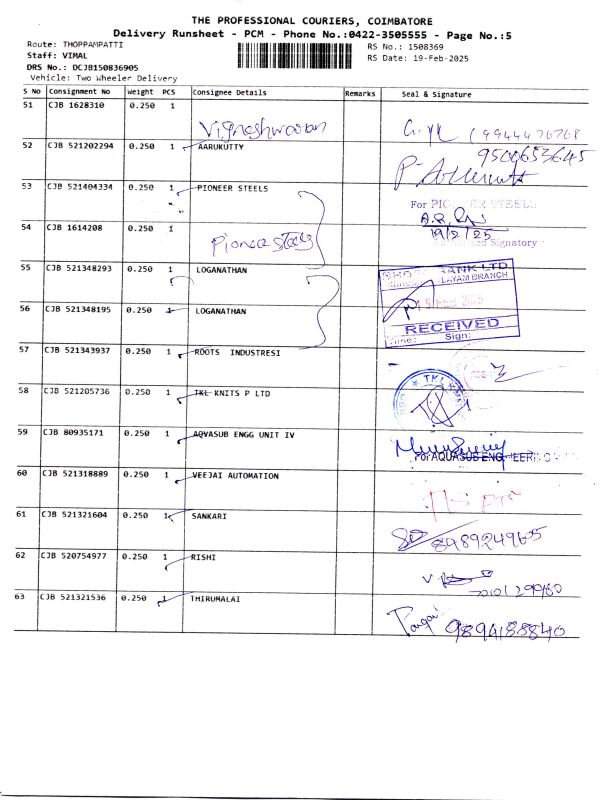 THE PROFESSIONAL COURIERS, COIMBATORE
Delivery Runsheet - PCM - Phone No.:0422-3505555 - Page No.:5
Route: THOPPAMPATTI
RS No.: 1508369
Staff: VIMAL
RS Date: 19-Feb-2025
DRS No.: DCJB150836905
Vehicle: Two Wheeler Delivery
S No Consignment No Weight PCS Consignee Details Remarks Seal & Signature
51 CJB 1628310 0.250 1
Vigneshwaran
52 CJB 521202294 0.250 1 AARUKUTTY
9500653645
53 CJB 521404334 0.250 1 PIONEER STEELS
For PIONEER STEELS
54 CJB 1614208 0.250 1
Pioneer Steels
19/2/25
Signatory
55 CJB 521348293 0.250 1 LOGANATHAN
BANK LTD
BRANCH
56 CJB 521348195 0.250 1 LOGANATHAN
RECEIVED
Time: Sign:
57 CJB 521343937 0.250 1 ROOTS INDUSTRESI
58 CJB 521205736 0.250 1 TKL KNITS P LTD
TKL
59 CJB 80935171 0.250 1 AQVASUB ENGG UNIT IV
For AQUASUB ENGINEERING
60 CJB 521318889 0.250 1 VEEJAI AUTOMATION
61 CJB 521321604 0.250 1 SANKARI
8989249605
62 CJB 520754977 0.250 1 RISHI
63 CJB 521321536 0.250 1 THIRUMALAI
9894188840